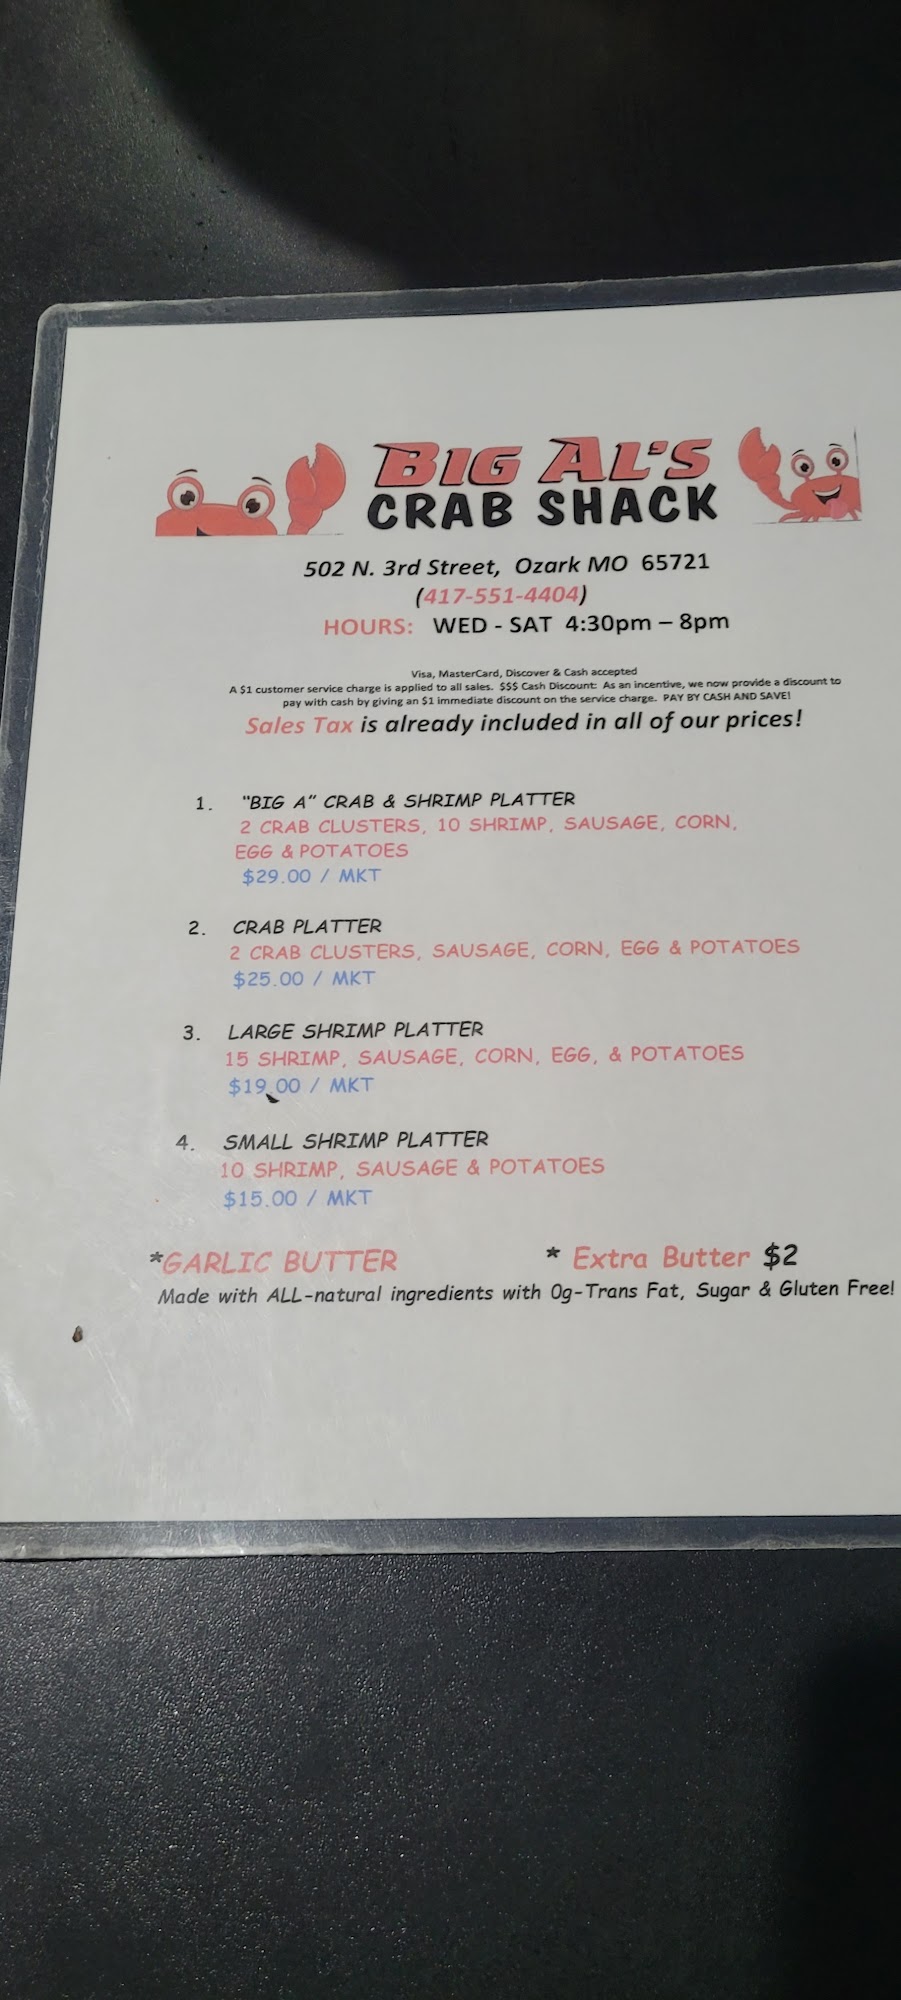 BIG AL'S
CRAB SHACK
502 N. 3rd Street, Ozark MO 65721
(417-551-4404)
HOURS: WED - SAT 4:30pm – 8pm
Visa, MasterCard, Discover & Cash accepted
A $1 customer service charge is applied to all sales. $$$ Cash Discount: As an incentive, we now provide a discount to
pay with cash by giving an $1 immediate discount on the service charge. PAY BY CASH AND SAVE!
Sales Tax is already included in all of our prices!
1. "BIG A" CRAB & SHRIMP PLATTER
2 CRAB CLUSTERS, 10 SHRIMP, SAUSAGE, CORN,
EGG & POTATOES
$29.00 / MKT
2. CRAB PLATTER
2 CRAB CLUSTERS, SAUSAGE, CORN, EGG & POTATOES
$25.00 / MKT
3. LARGE SHRIMP PLATTER
15 SHRIMP, SAUSAGE, CORN, EGG, & POTATOES
$19.00 / MKT
4. SMALL SHRIMP PLATTER
10 SHRIMP, SAUSAGE & POTATOES
$15.00 / MKT
*GARLIC BUTTER * Extra Butter $2
Made with ALL-natural ingredients with 0g-Trans Fat, Sugar & Gluten Free!